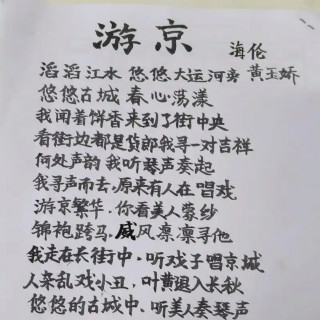 游京
海伦
滔滔江水 悠悠大运河旁 黄玉娇
悠悠古城 春心荡漾
我闻着饼香来到了街中央
看街边都是货郎我寻一对吉祥
何处声韵 我听琴声奏起
我寻声而去，原来有人在唱戏
游京繁华，你看美人蒙纱
锦袍跨马，威风凛凛寻他
我走在长街中，听戏子唱京城
人杂乱戏小丑，叶黄退入长秋
悠悠的古城中，听美人奏琴声